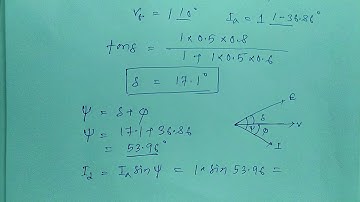 Vt = 1∠0° Ia = 1∠-36.86°
tan δ = 1×0.5×0.8 / 1+1×0.5×0.6
δ = 17.1°
Ψ = δ + φ
Ψ = 17.1+36.86
= 53.96°
Id = Ia sin Ψ = 1× sin 53.96 =
E
δ
V
Ψ φ
I